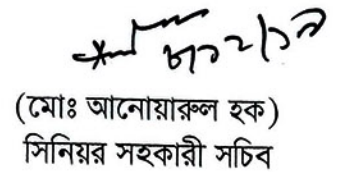 (মোঃ আনোয়ারুল হক)
সিনিয়র সহকারী সচিব